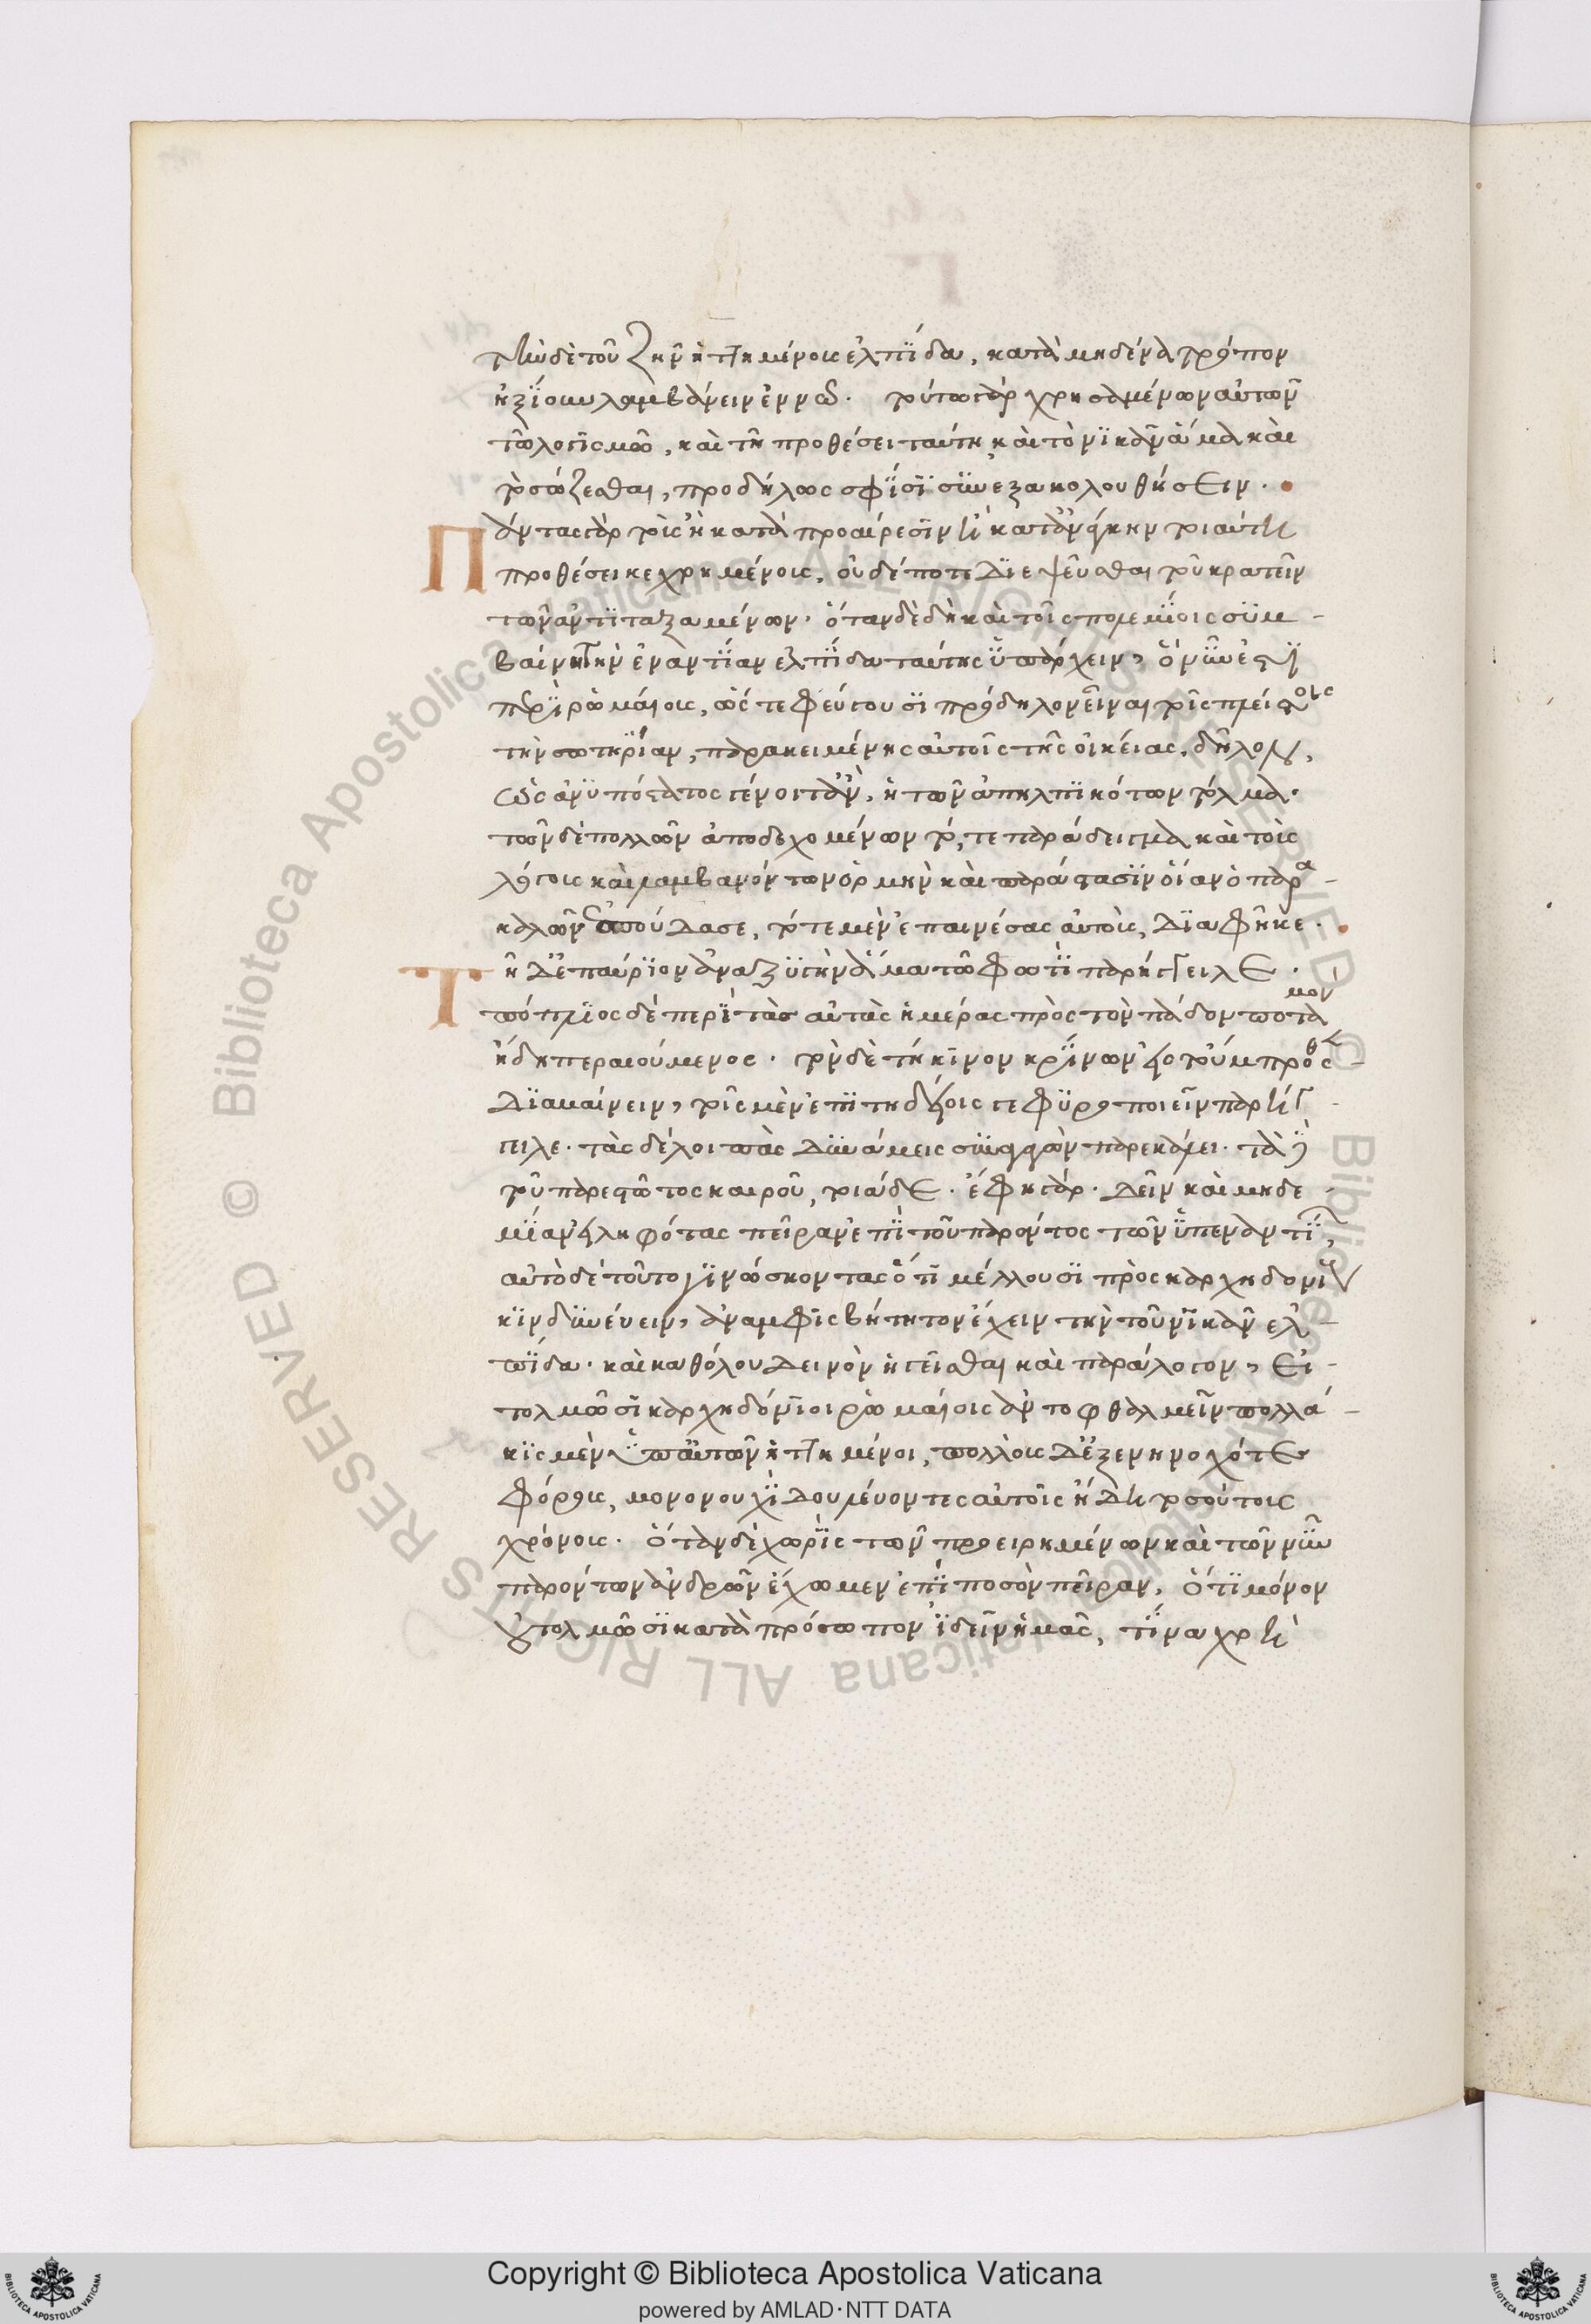 τὴν δὲ τοῦ ζῆν ἡττημένοις ἐλπίδα, κατὰ μηδένα τρόπον
ἠξίου λαμβάνειν ἐν νῶ. τούτω γὰρ χρησαμένων αὐτῶν
τῶ λογισμῶ, καὶ τῆ προθέσει ταύτη καὶ τὸ νικᾶν ἅμα καὶ
τὸ σώζεσθαι, προδήλως σφίσι συνεξακολουθήσειν.
Πάντας γὰρ τοὺς ἢ κατὰ προαίρεσιν ἢ κατ' ἀνάγκην τοιαύτη
προθέσει κεχρημένους, οὐδέποτε διεψεῦσθαι τοῦ κρατεῖν
τῶν ἀντιταξαμένων. ὅταν δὲ δὴ καὶ τοῖς πολεμίοις συμ-
βαίνη τὴν ἐναντίαν ἐλπίδα ταύτης ὑπάρχειν, ὃ νῦν ἐστι
περὶ ῥωμαίους, ὥστε φεύγουσι πρόδηλον εἶναι τοῖς πλείστοις
τὴν σωτηρίαν, παρακειμένης αὐτοῖς τῆς οἰκείας, δῆλον,
ὡς ἀνυπόστατος γένοιτ' ἂν, ἡ τῶν ἀπηλπικότων τόλμα.
τῶν δὲ πολλῶν ἀποδεχομένων τό, τε παράδειγμα καὶ τοὺς
λόγους καὶ λαμβανόντων ὁρμὴν καὶ παράστασιν οἵαν ὁ παρα-
καλῶν ἐσπούδασε, τότε μὲν ἐπαινέσας αὐτοὺς, διαφῆκε.
Τῆ δ' ἐπαύριον ἀναζυγὴν ἅμα τῶ φωτὶ παρήγγειλε.
πόπλιος δὲ περὶ τὰς αὐτὰς ἡμέρας πρὸς τὸν πάδον ποταμον
ἤδη περαιούμενος. τὸν δὲ τήκινον κρίνων εἰς τοὔμπροσθεν
διαμαίνειν, τοῖς μὲν ἐπιτηδείοις γεφυροποιεῖν παρήγ-
γειλε. τὰς δὲ λοιπὰς δυνάμεις συναγαγὼν παρεκάλει. τὰ ὑ
τοῦ παρεστῶτος καιροῦ, τοιάδε. ἔφη γάρ. δεῖν καὶ μηδε-
μίαν εἰληφότας πεῖραν ἐπὶ τοῦ παρόντος τῶν ὑπεναντίων,
αὐτὸ δὲ τοῦτο γινώσκοντας ὅτι μέλλουσι πρὸς καρχηδονίους
κινδυνεύειν, ἀναμφισβήτητον ἔχειν τὴν τοῦ νικᾶν ἐλ-
πίδα. καὶ καθόλου δεινὸν ἡγεῖσθαι καὶ παράλογον, εἰ
τολμῶσι καρχηδόνιοι ῥωμαίοις ἀντοφθαλμεῖν πολλά-
κις μὲν ὑπ' αὐτῶν ἡττημένοι, πολλοὺς δ' ἐξενηνοχότες
φόρους, μονονουχὶ δουλεύοντες αὐτοῖς ἤδη τοσούτους
χρόνους. ὅταν δὲ χωρὶς τῶν προειρημένων καὶ τῶν νῦν
παρόντων ἀνδρῶν ἔχωμεν ἐπὶ ποσὸν πεῖραν, ὅτι μόνον
οὐ τολμῶσι κατὰ πρόσωπον ἰδεῖν ἡμᾶς, τίνα χρὴ